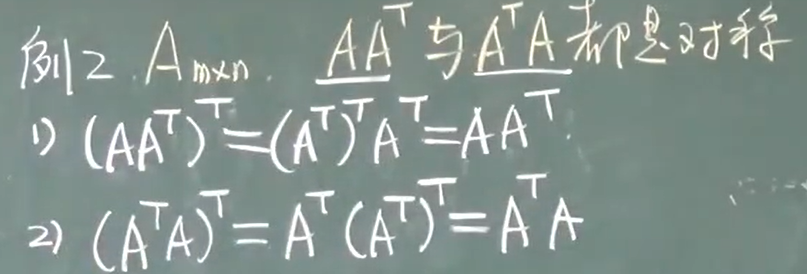 例2. Aₘₓₙ. AAᵀ与AᵀA都是对称
1) (AAᵀ)ᵀ=(Aᵀ)ᵀAᵀ=AAᵀ.
2) (AᵀA)ᵀ=Aᵀ(Aᵀ)ᵀ=AᵀA